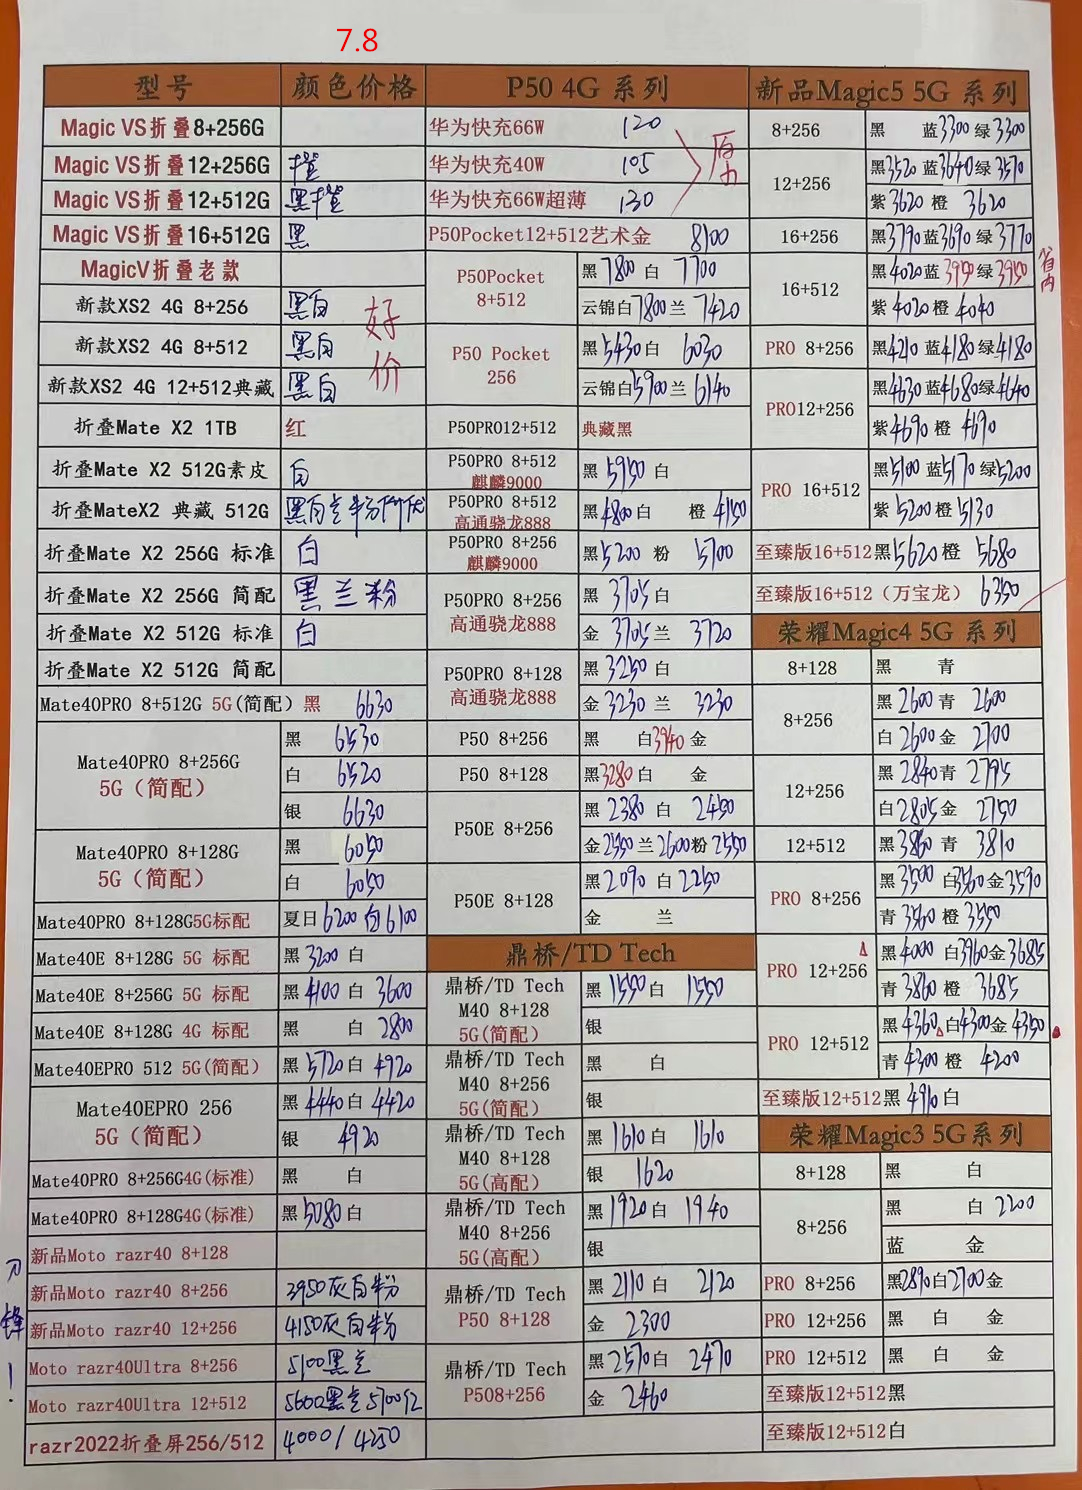 7.8
型号 颜色价格
Magic VS折叠8+256G
Magic VS折叠12+256G 橙
Magic VS折叠12+512G 黑橙
Magic VS折叠16+512G 黑
MagicV折叠老款
新款XS2 4G 8+256 黑白
新款XS2 4G 8+512 黑白
新款XS2 4G 12+512典藏 黑白
好价
折叠Mate X2 1TB 红
折叠Mate X2 512G素皮 白
折叠MateX2 典藏 512G 黑白兰粉
折叠Mate X2 256G 标准 白
折叠Mate X2 256G 简配 黑兰粉
折叠Mate X2 512G 标准 白
折叠Mate X2 512G 简配
Mate40PRO 8+512G 5G(简配) 黑 6630
Mate40PRO 8+256G
5G (简配)
黑 6530
白 6520
银 6630
Mate40PRO 8+128G
5G (简配)
黑 6050
白 6050
Mate40PRO 8+128G5G标配 夏日 6200 白 6100
Mate40E 8+128G 5G 标配 黑 3200 白
Mate40E 8+256G 5G 标配 黑 4100 白 3600
Mate40E 8+128G 4G 标配 黑 白 2800
Mate40EPRO 512 5G(简配) 黑 5720 白 4920
Mate40EPRO 256
5G (简配)
黑 4440 白 4420
银 4920
Mate40PRO 8+256G4G(标准) 黑 白
Mate40PRO 8+128G4G(标准) 黑 5080 白
新品Moto razr40 8+128
新品Moto razr40 8+256 3950灰白粉
新品Moto razr40 12+256 4150灰白粉
Moto razr40Ultra 8+256 5100黑兰
Moto razr40Ultra 12+512 5600黑兰5700红
razr2022折叠屏256/512 4000/4250
刀锋!
P50 4G 系列
华为快充66W 120
华为快充40W 105
华为快充66W超薄 130
原
P50Pocket12+512艺术金 8100
P50Pocket
8+512
黑 7800 白 7700
云锦白 7800 兰 7420
P50 Pocket
256
黑 5430 白 6030
云锦白 5900 兰 6140
P50PRO12+512 典藏黑
P50PRO 8+512
麒麟9000
黑 5950 白
P50PRO 8+512
高通骁龙888
黑 4800 白 橙 4150
P50PRO 8+256
麒麟9000
黑 5200 粉 5700
P50PRO 8+256
高通骁龙888
黑 3705 白
金 3705 兰 3720
P50PRO 8+128
高通骁龙888
黑 3250 白
金 3230 兰 3230
P50 8+256 黑 白 3940 金
P50 8+128 黑 3280 白 金
P50E 8+256
黑 2380 白 2450
金 2550 兰 2600 粉 2550
P50E 8+128
黑 2090 白 2250
金 兰
鼎桥/TD Tech
鼎桥/TD Tech
M40 8+128
5G(简配)
黑 1550 白 1550
银
鼎桥/TD Tech
M40 8+256
5G(简配)
黑 白
银
鼎桥/TD Tech
M40 8+128
5G(高配)
黑 1610 白 1610
银 1620
鼎桥/TD Tech
M40 8+256
5G(高配)
黑 1920 白 1940
银
鼎桥/TD Tech
P50 8+128
黑 2110 白 2120
金 2300
鼎桥/TD Tech
P508+256
黑 2570 白 2470
金 2460
新品Magic5 5G 系列
8+256 黑 蓝 3300 绿 3300
12+256
黑 3520 蓝 3640 绿 3570
紫 3620 橙 3620
16+256 黑 3790 蓝 3690 绿 3770
16+512
黑 4020 蓝 3950 绿 3950
省内
紫 4020 橙 4040
PRO 8+256 黑 4210 蓝 4180 绿 4180
PRO12+256
黑 4630 蓝 4680 绿 4640
紫 4690 橙 4690
PRO 16+512
黑 5100 蓝 5170 绿 5200
紫 5200 橙 5130
至臻版16+512 黑 5620 橙 5680
至臻版16+512 (万宝龙) 6350
荣耀Magic4 5G 系列
8+128 黑 青
8+256
黑 2600 青 2600
白 2600 金 2700
12+256
黑 2840 青 2795
白 2805 金 2750
12+512 黑 3860 青 3810
PRO 8+256
黑 3500 白 3560 金 3590
青 3560 橙 3550
PRO 12+256
黑 4000 白 3960 金 3685
青 3860 橙 3685
PRO 12+512
黑 4360 白 4300 金 4350
青 4300 橙 4200
至臻版12+512 黑 4910 白
荣耀Magic3 5G系列
8+128 黑 白
8+256
黑 白 2200
蓝 金
PRO 8+256 黑 2890 白 2700 金
PRO 12+256 黑 白 金
PRO 12+512 黑 白 金
至臻版12+512 黑
至臻版12+512 白